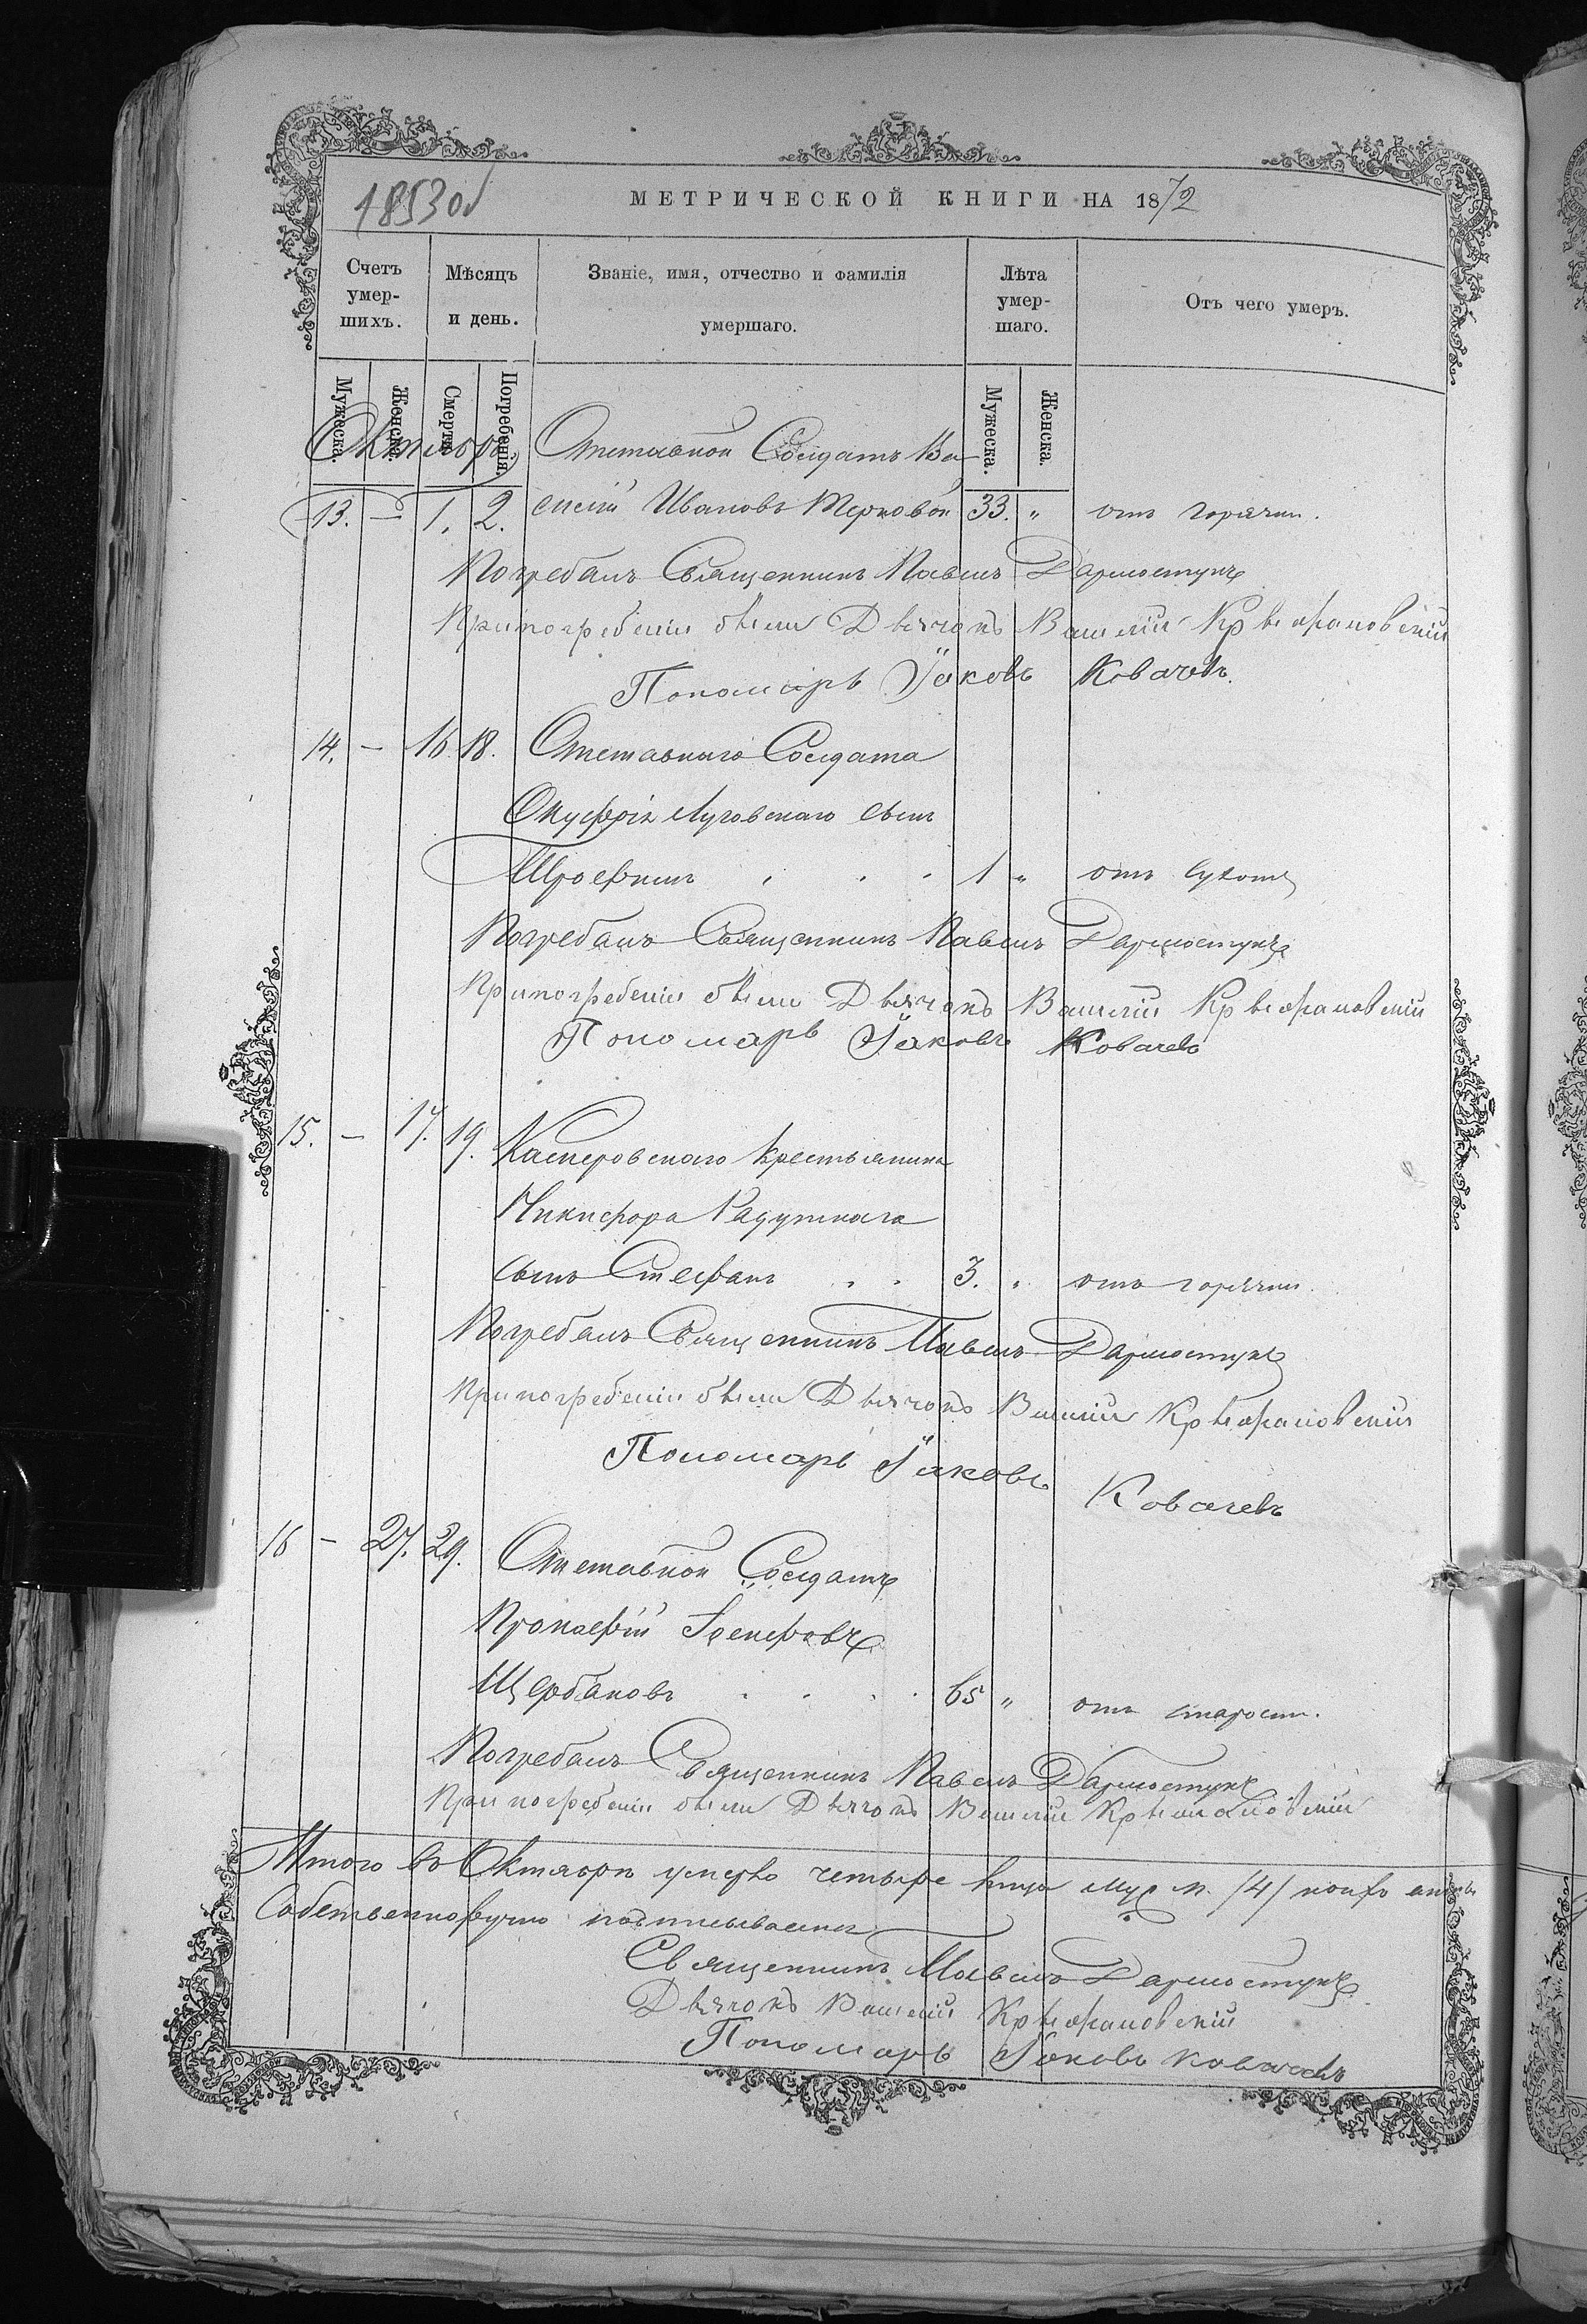 1853об
МЕТРИЧЕСКОЙ КНИГИ НА 1872
Счетъ умер-шихъ.
Мѣсяцъ и день.
Званіе, имя, отчество и фамилія умершаго.
Лѣта умер-шаго.
Отъ чего умеръ.
Мужеска.
Женска.
Смерти.
Погребенія.
Мужеска.
Женска.
Октябрь Отставной Солдатъ Ва-
13. — 1. 2. силій Ивановъ Терновой 33. „ отъ горячки.
Погребалъ Священникъ Павелъ Дармостукъ
При погребеніи были Дьячокъ Василій Крыжановскій
Пономарь Іаковъ Ковачевъ.
14. — 16. 18. Отставнаго Солдата
Онуфрія Луговскаго сынъ
Трофимъ . . . 1 „ отъ сухотъ
Погребалъ Священникъ Павелъ Дармостукъ
При погребеніи были Дьячокъ Василій Крыжановскій
Пономарь Іаковъ Ковачевъ
15. — 17. 19. Касперовскаго крестьянина
Никифора Радутнаго
сынъ Стефанъ . . 3. „ отъ горячки.
Погребалъ Священникъ Павелъ Дармостукъ
При погребеніи были Дьячокъ Василій Крыжановскій
Пономарь Іаковъ Ковачевъ
16 — 27. 29. Отставной Солдатъ
Прокофій
Щербаковъ . . . . 65 „ отъ старости.
Погребалъ Священникъ Павелъ Дармостукъ
При погребеніи были Дьячокъ Василій Крыжановскій
Итого въ Октябрѣ умерло четыре муж. п. /4/
Собственноручно подписываемся
Священникъ Павелъ Дармостукъ
Дьячокъ Василій Крыжановскій
Пономарь Іаковъ Ковачевъ